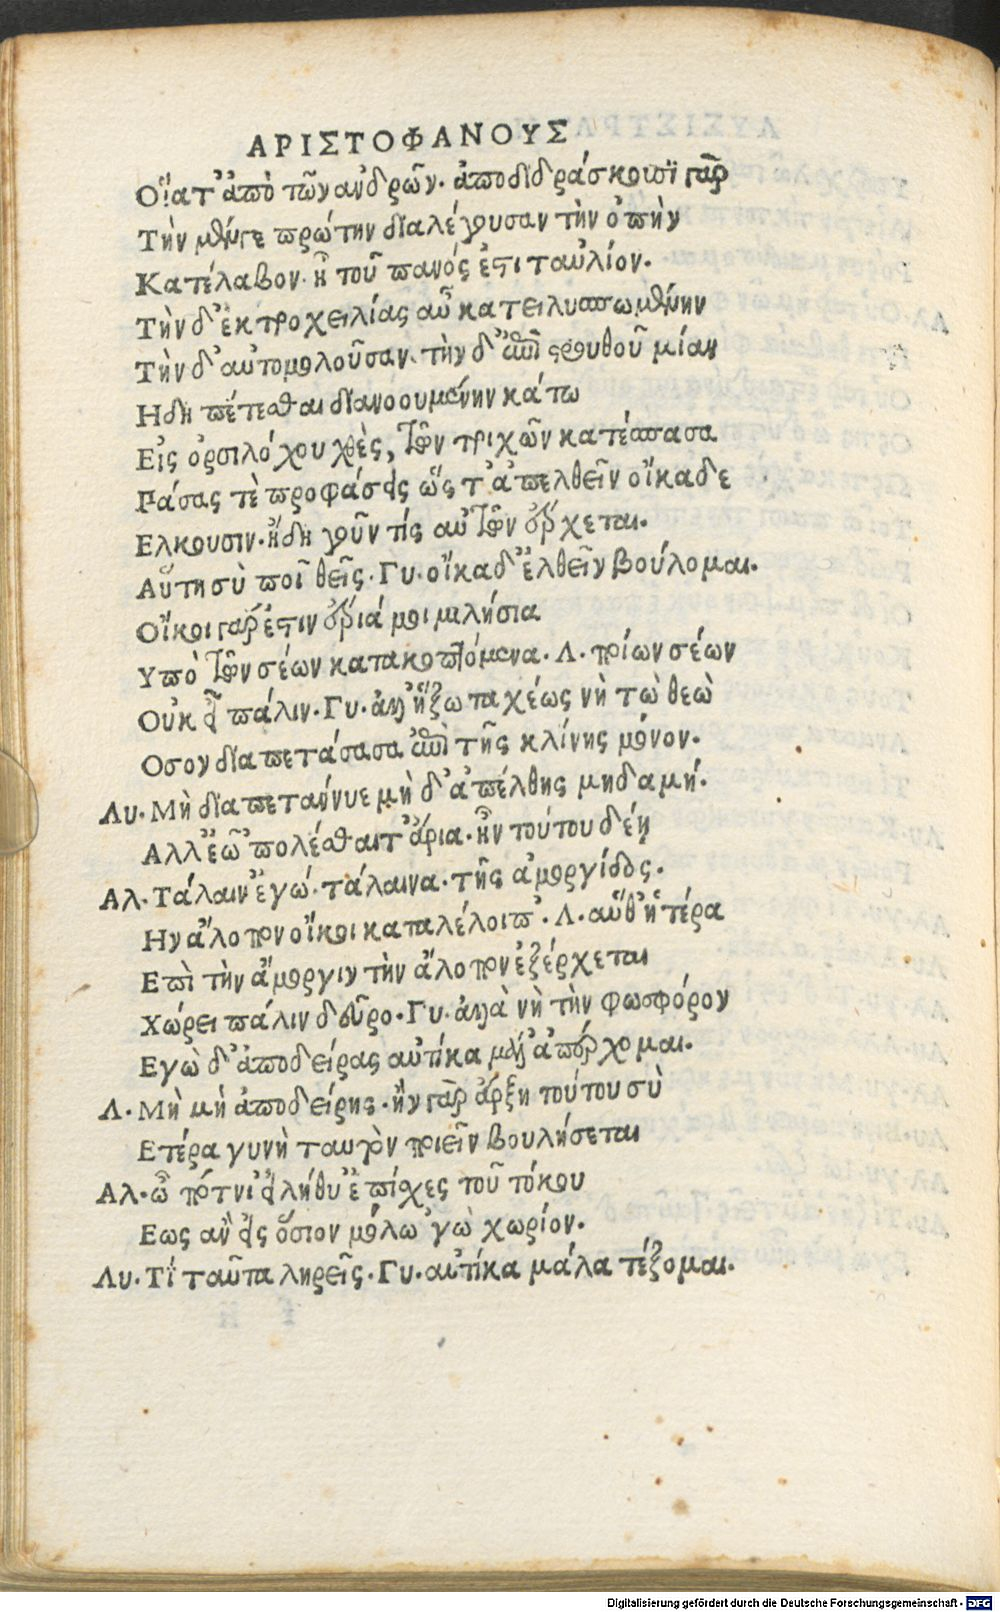 ΑΡΙΣΤΟΦΑΝΟΥΣ
Οἵατ' ἀπὸ τῶν ανδρῶν. ἀποδιδράσκουσϊ γαρ
Τὴν μὲν γε πρώτην διαλέγουσαν τὴν ὀπὴν
Κατέλαβον. ἧ τοῦ πανός ἐστι ταὐλίον.
Τὴν δ' ἐκ τροχειλίας αὖ κατειλυσπωμένην
Τὴν δ' αὐτομολοῦσαν. τὴν δ' ἐπὶ στρουθοῦ μίαν
Ηδη πέτεσθαι διανοουμένην κάτω
Εἰς ὀρσιλόχου χθὲς, τῶν τριχῶν κατέσπασα
Πάσας τὲ προφάσεις ὥς τ' ἀπελθεῖν οἴκαδε
Ελκουσιν. ἤδη γοῦν τίς αὐτῶν ἔρχεται.
Αὕτη σὺ ποῖ θεῖς. Γυ. οἴκαδ' ἐλθεῖν βούλομαι.
Οἴκοι γαρ ἐστιν ἔριά μοι μιλήσια
Υπὸ τῶν σέων κατακοπτόμενα. Λ. πρίων σέων
Οὐκ εἶ πάλιν. Γυ. ἀλλ' ἥξω ταχέως νὴ τὼ θεὼ
Οσον διαπετάσασα ἐπὶ τῆς κλίνης μόνον.
Λυ. Μὴ διαπετάννυε μὴ δ' ἀπέλθης μηδαμή.
Αλλ' ἐῶ 'πολέσθαι τ' ἄρια. ἢν τούτου δέῃ
Αλ. Τάλαιν' ἐγώ. τάλαινα. τῆς ἀμοργίδος.
Ην ἄλοπον οἴκοι καταλέλοιπ'. Λ. αὕθ' ἡτέρα
Επὶ τὴν ἄμοργιν τὴν ἄλοπον ἐξέρχεται
Χώρει πάλιν δεῦρο. Γυ. ἀλλὰ νὴ τὴν φωσφόρον
Εγὼ δ' ἀποδείρας αὐτίκα μάλ' ἀπέρχομαι.
Λ. Μὴ μή ἀποδείρης. ἢν γαρ ἄρξη τούτου σὺ
Ετέρα γυνὴ ταυτὸν ποιεῖν βουλήσεται
Αλ. ὦ πότνι' εἰλήθυ' ἐπίσχες τοῦ τόκου
Εως ἂν εἰς ὅσιον μόλω 'γὼ χωρίον.
Λυ. Τί ταῦτα ληρεῖς. Γυ. αὐτίκα μάλα τέξομαι.
Digitalisierung gefördert durch die Deutsche Forschungsgemeinschaft - DFG